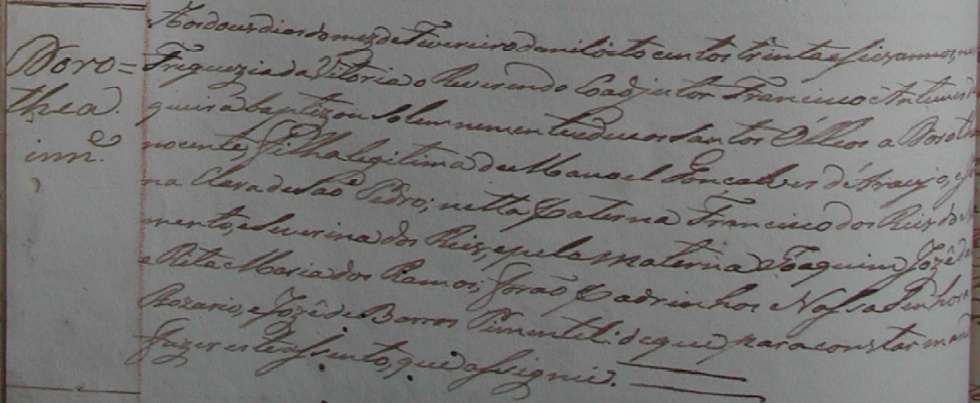 Doro=
thea.
inn.e
Aos dous dias do mez de Fevereiro de mil oito centos trinta e seis annos, n
Freguezia da Vitoria o Reverendo Coadjutor Francisco Antunes
queira baptizou solemnemente e deu os Santos Olleos a Doroth
nocente, Filha legitima de Manoel Gonçalves d'Araujo, e
na Clara de São Pedro; netta paterna Francisco dos Reis do
mento, e Severina dos Reis, e pela materna Joaquim Jozé d
e Rita Maria dos Ramos; forão padrinhos Nossa Senhora
Rozario, e Jozé de Barros Pimentel: de que para constar mand
fazer este assento, que assignei.